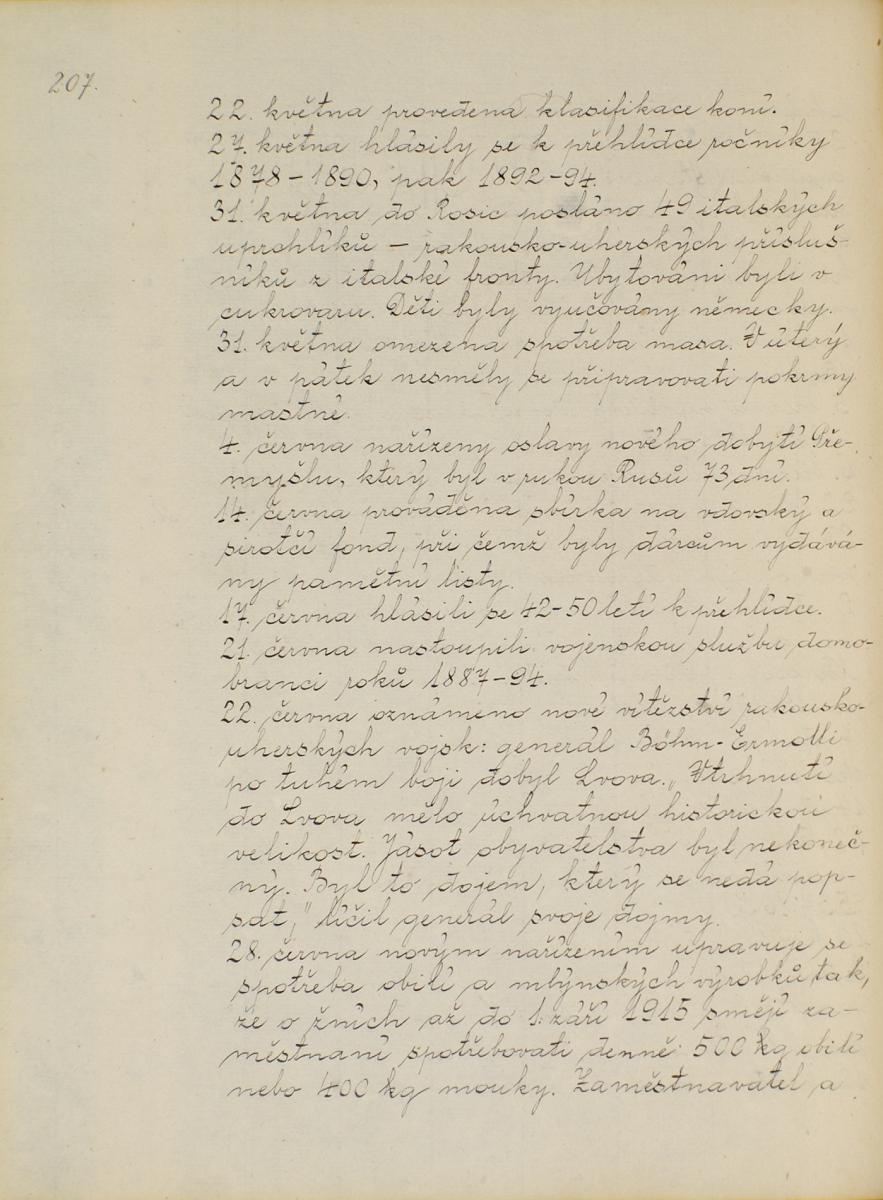 207.
22. května provedena klasifikace koní.
27. května hlásily se k přehlídce ročníky
1878-1890, pak 1892-94.
31. května do Rosic posláno 49 italských
uprchlíků - rakousko-uherských přísluš-
níků z italské fronty. Ubytováni byli v
cukrovaru. Děti byly vyučovány německy.
31. května omezena spotřeba masa. V úterý
a v pátek nesměly se připravovati pokrmy
mastné.
4. června nařízeny oslavy nového dobytí Pře-
myšlu, který byl v rukou Rusů 73 dní.
14. června prováděna sbírka na vdovský a
sirotčí fond, při čemž byly dárcům vydává-
ny pamětní listy.
17. června hlásili se 42-50 letí k přehlídce.
21. června nastoupili vojenskou službu domo-
branci roků 1887-94.
22. června oznámeno nové vítězství rakousko-
uherských vojsk: generál Böhm-Ermolli
po tuhém boji dobyl Lvova. „Vtrhnutí
do Lvova mělo úchvatnou historickou
velikost. Jásot obyvatelstva byl nekoneč-
ný. Byl to dojem, který se nedá pop-
sat," líčil generál svoje dojmy.
28. června novým nařízením upravuje se
spotřeba obilí a mlýnských výrobků tak,
že o žních až do 1. září 1915 smějí za-
městnaní spotřebovati denně 500 kg obilí
nebo 400 kg mouky. Zaměstnavatel a